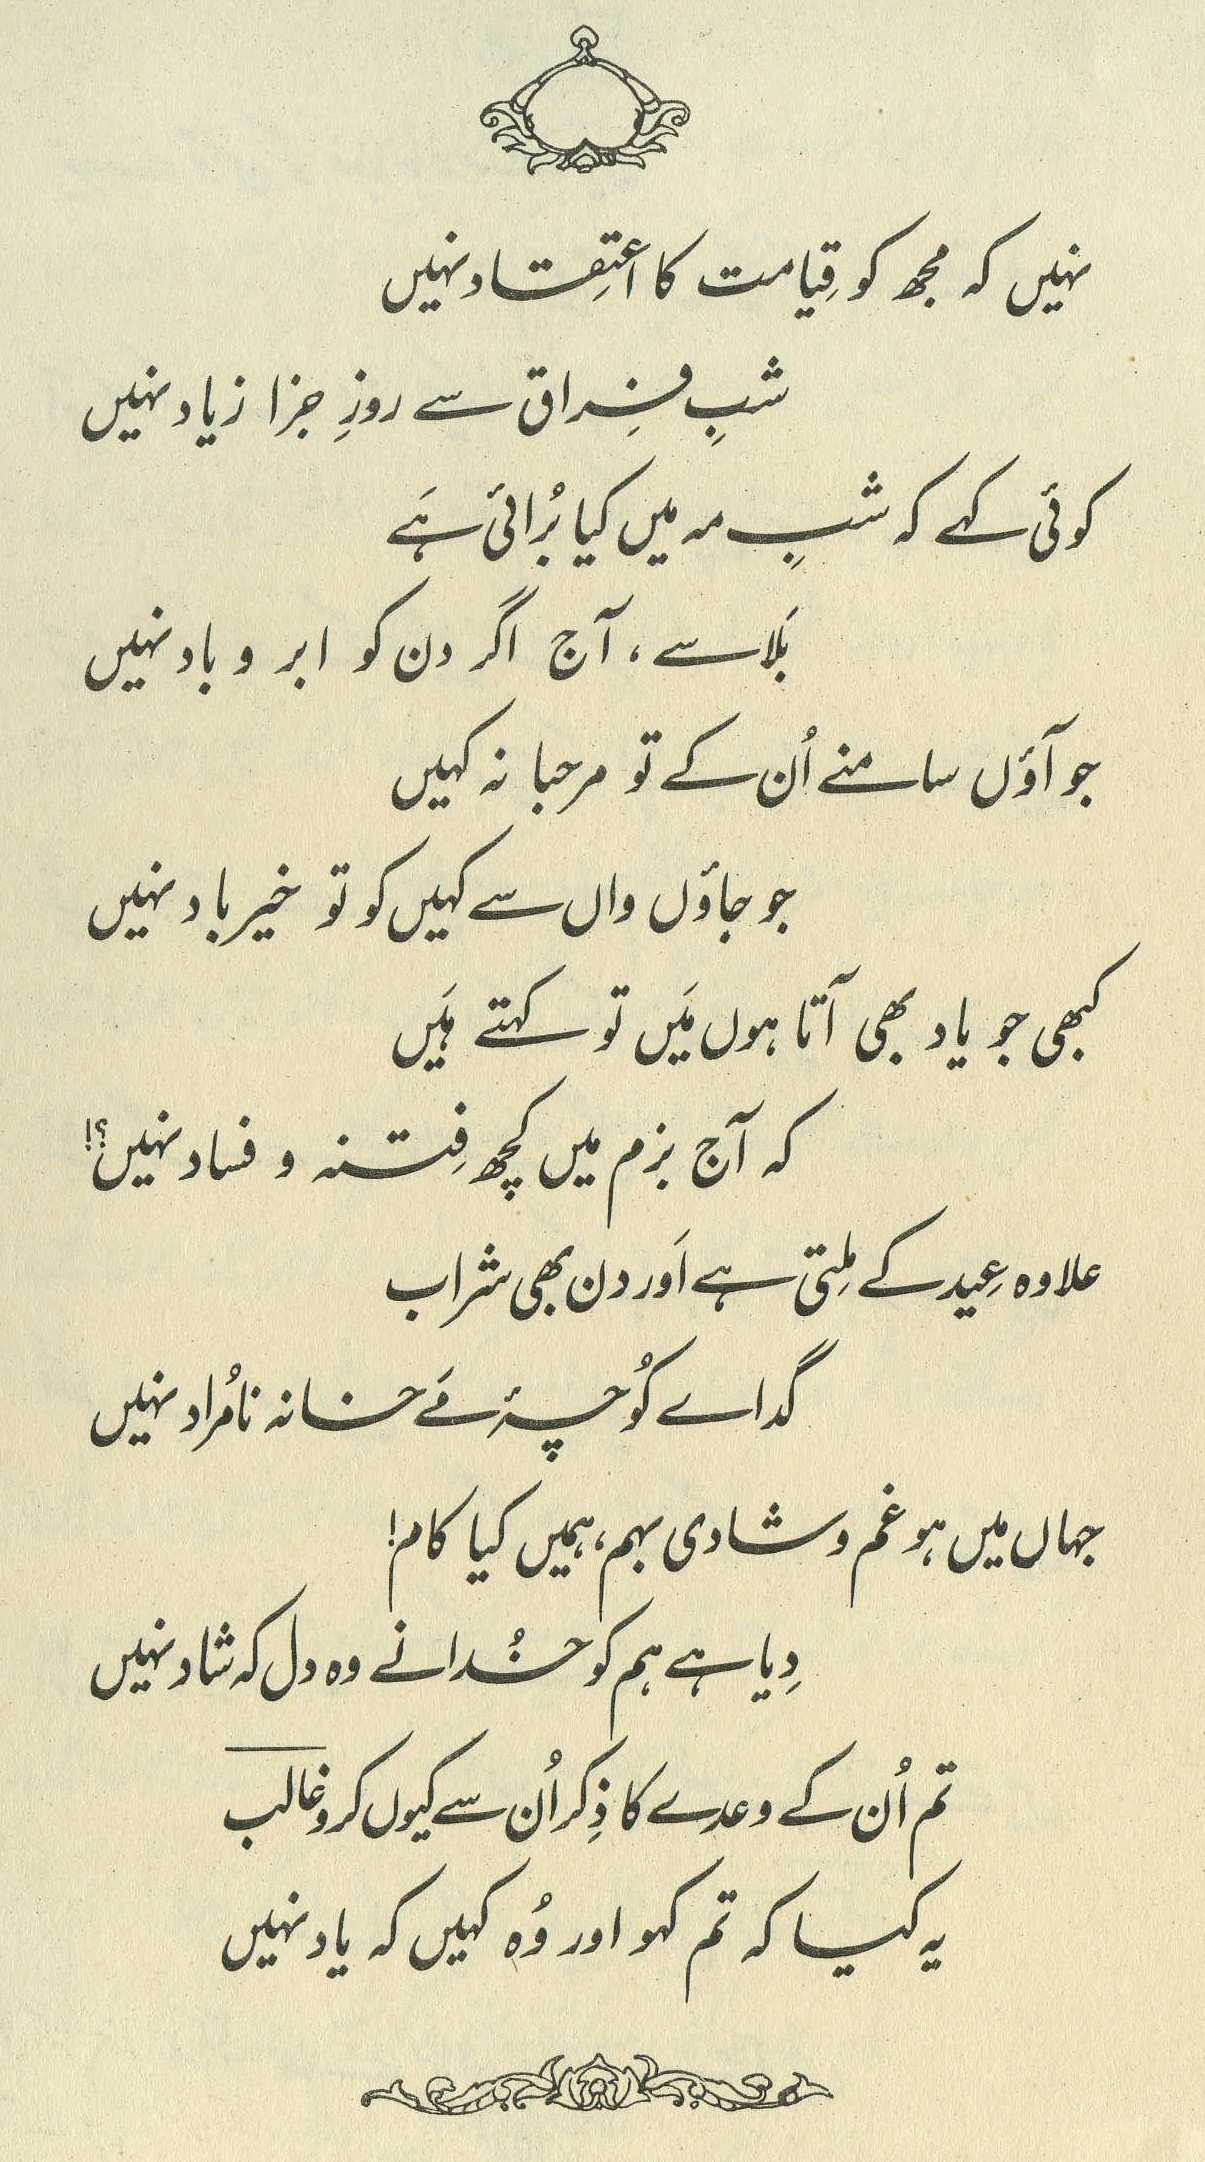 نہیں کہ مجھ کو قِیامت کا اعتِقاد نہیں
شبِ فِراق سے روزِ جزا زیاد نہیں
کوئی کہے کہ شبِ مہ میں کیا بُرائی ہَے
بَلا سے، آج اگر دن کو ابر و باد نہیں
جو آؤں سامنے اُن کے تو مرحبا نہ کہیں
جو جاؤں واں سے کہیں کو تو خیر باد نہیں
کبھی جو یاد بھی آتا ہوں مَیں تو کہتے ہَیں
کہ آج بزم میں کچھ فِتنہ و فساد نہیں؟!
علاوہ عِید کے مِلتی ہے اَور دن بھی شراب
گداے کُوچۂ مَے خانہ نامُراد نہیں
جہاں میں ہو غم و شادی بہم، ہمیں کیا کام!
دِیا ہے ہم کو خُدا نے وہ دل کہ شاد نہیں
تم اُن کے وعدے کا ذِکر اُن سے کیوں کرو غالب
یہ کیا کہ تم کہو اور وُہ کہیں کہ یاد نہیں